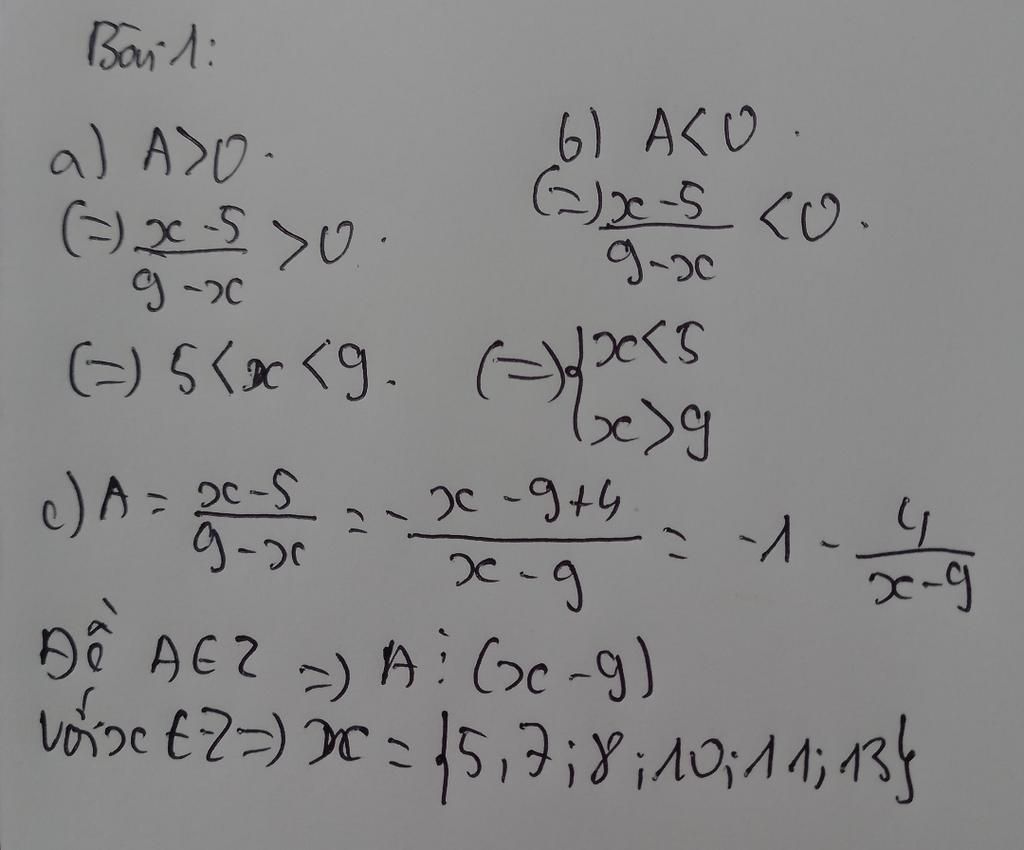 Bài 1:
a) A>0.
(=) x-5/9-x >0.
(=) 5<x<9.
b) A<0.
(=) x-5/9-x <0.
(=) { x<5
x>9
c) A = x-5/9-x = - x-9+4/x-9 = -1 - 4/x-9
Để A∈Z => A⋮(x-9)
Với x∈Z => x = {5,7;8;10;11;13}